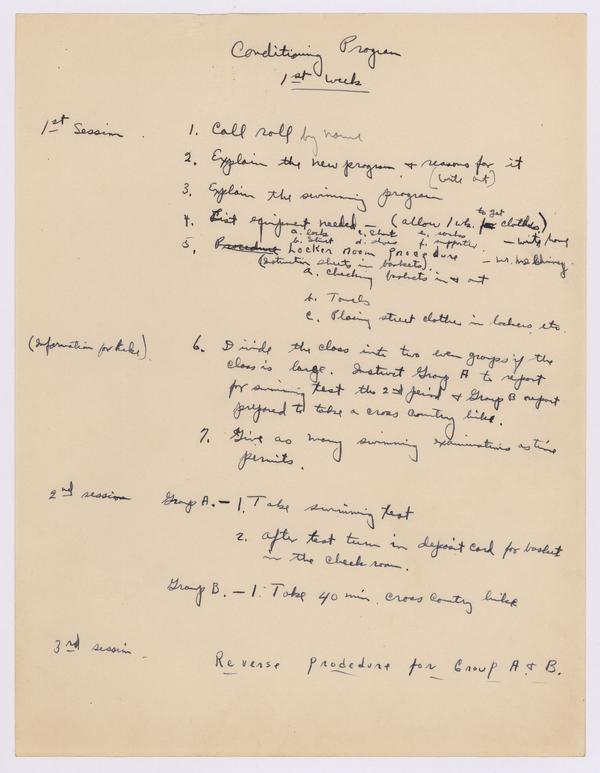 Conditioning Program
1st week
1st Session. 1. Call roll by name
2. Explain the new program & reasons for it
(write out)
3. Explain the swimming program
to get
4. List equipment needed - (allow 1 wk. for clothes)
a. locks c. shirt e. socks - write home
b. short d. shoes f. supporter
5. Procedure Locker room procedure - Mr. McChiney
(instruction sheets in baskets).
a. checking baskets in & out
b. Towels
c. Placing street clothes in lockers, etc.
(Information for hike). 6. Divide the class into two even groups if the
class is large. Instruct Group A to report
for swimming test the 2nd period & Group B report
prepared to take a cross country hike.
7. Give as many swimming examinations as time
permits.
2nd session Group A. - 1. Take swimming test
2. after test turn in deposit card for basket
in the check room.
Group B. - 1. Take 40 min. cross country hike
3rd session - Reverse prodedure for Group A & B.